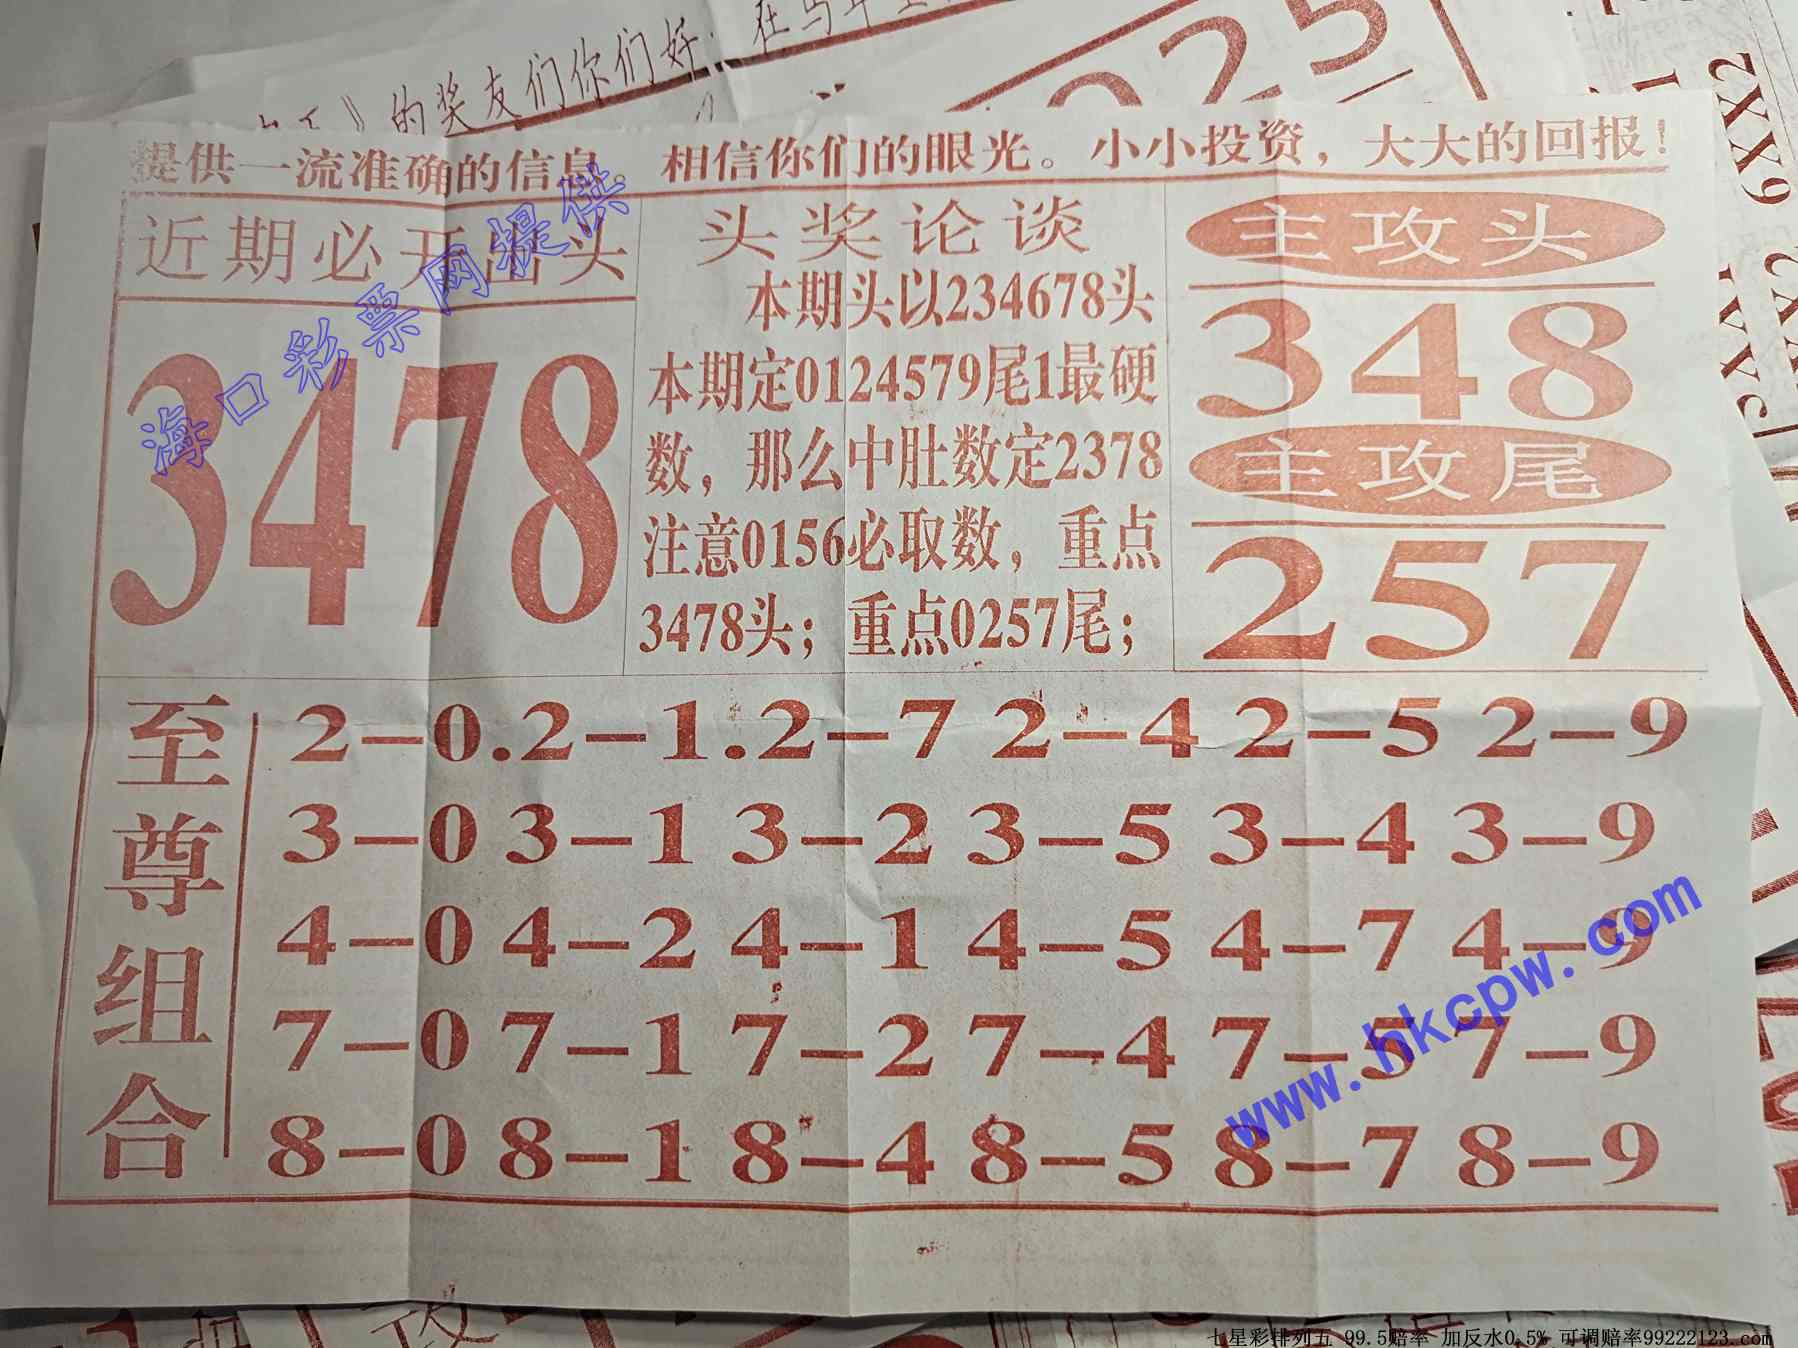 的奖友们你们好.
提供一流准确的信息. 相信你们的眼光。小小投资，大大的回报！
近期必开出头
3478
头奖论谈
本期头以234678头
本期定0124579尾1最硬
数，那么中肚数定2378
注意0156必取数，重点
3478头；重点0257尾；
主攻头
348
主攻尾
257
至尊组合
2-0.2-1.2-7 2-4 2-5 2-9
3-0 3-1 3-2 3-5 3-4 3-9
4-0 4-2 4-1 4-5 4-7 4-9
7-0 7-1 7-2 7-4 7-5 7-9
8-0 8-1 8-4 8-5 8-7 8-9
海口彩票网提供
www.hkcpw.com
025
6XX2
七星彩排列五 99.5赔率 加反水0.5% 可调赔率99222123.com